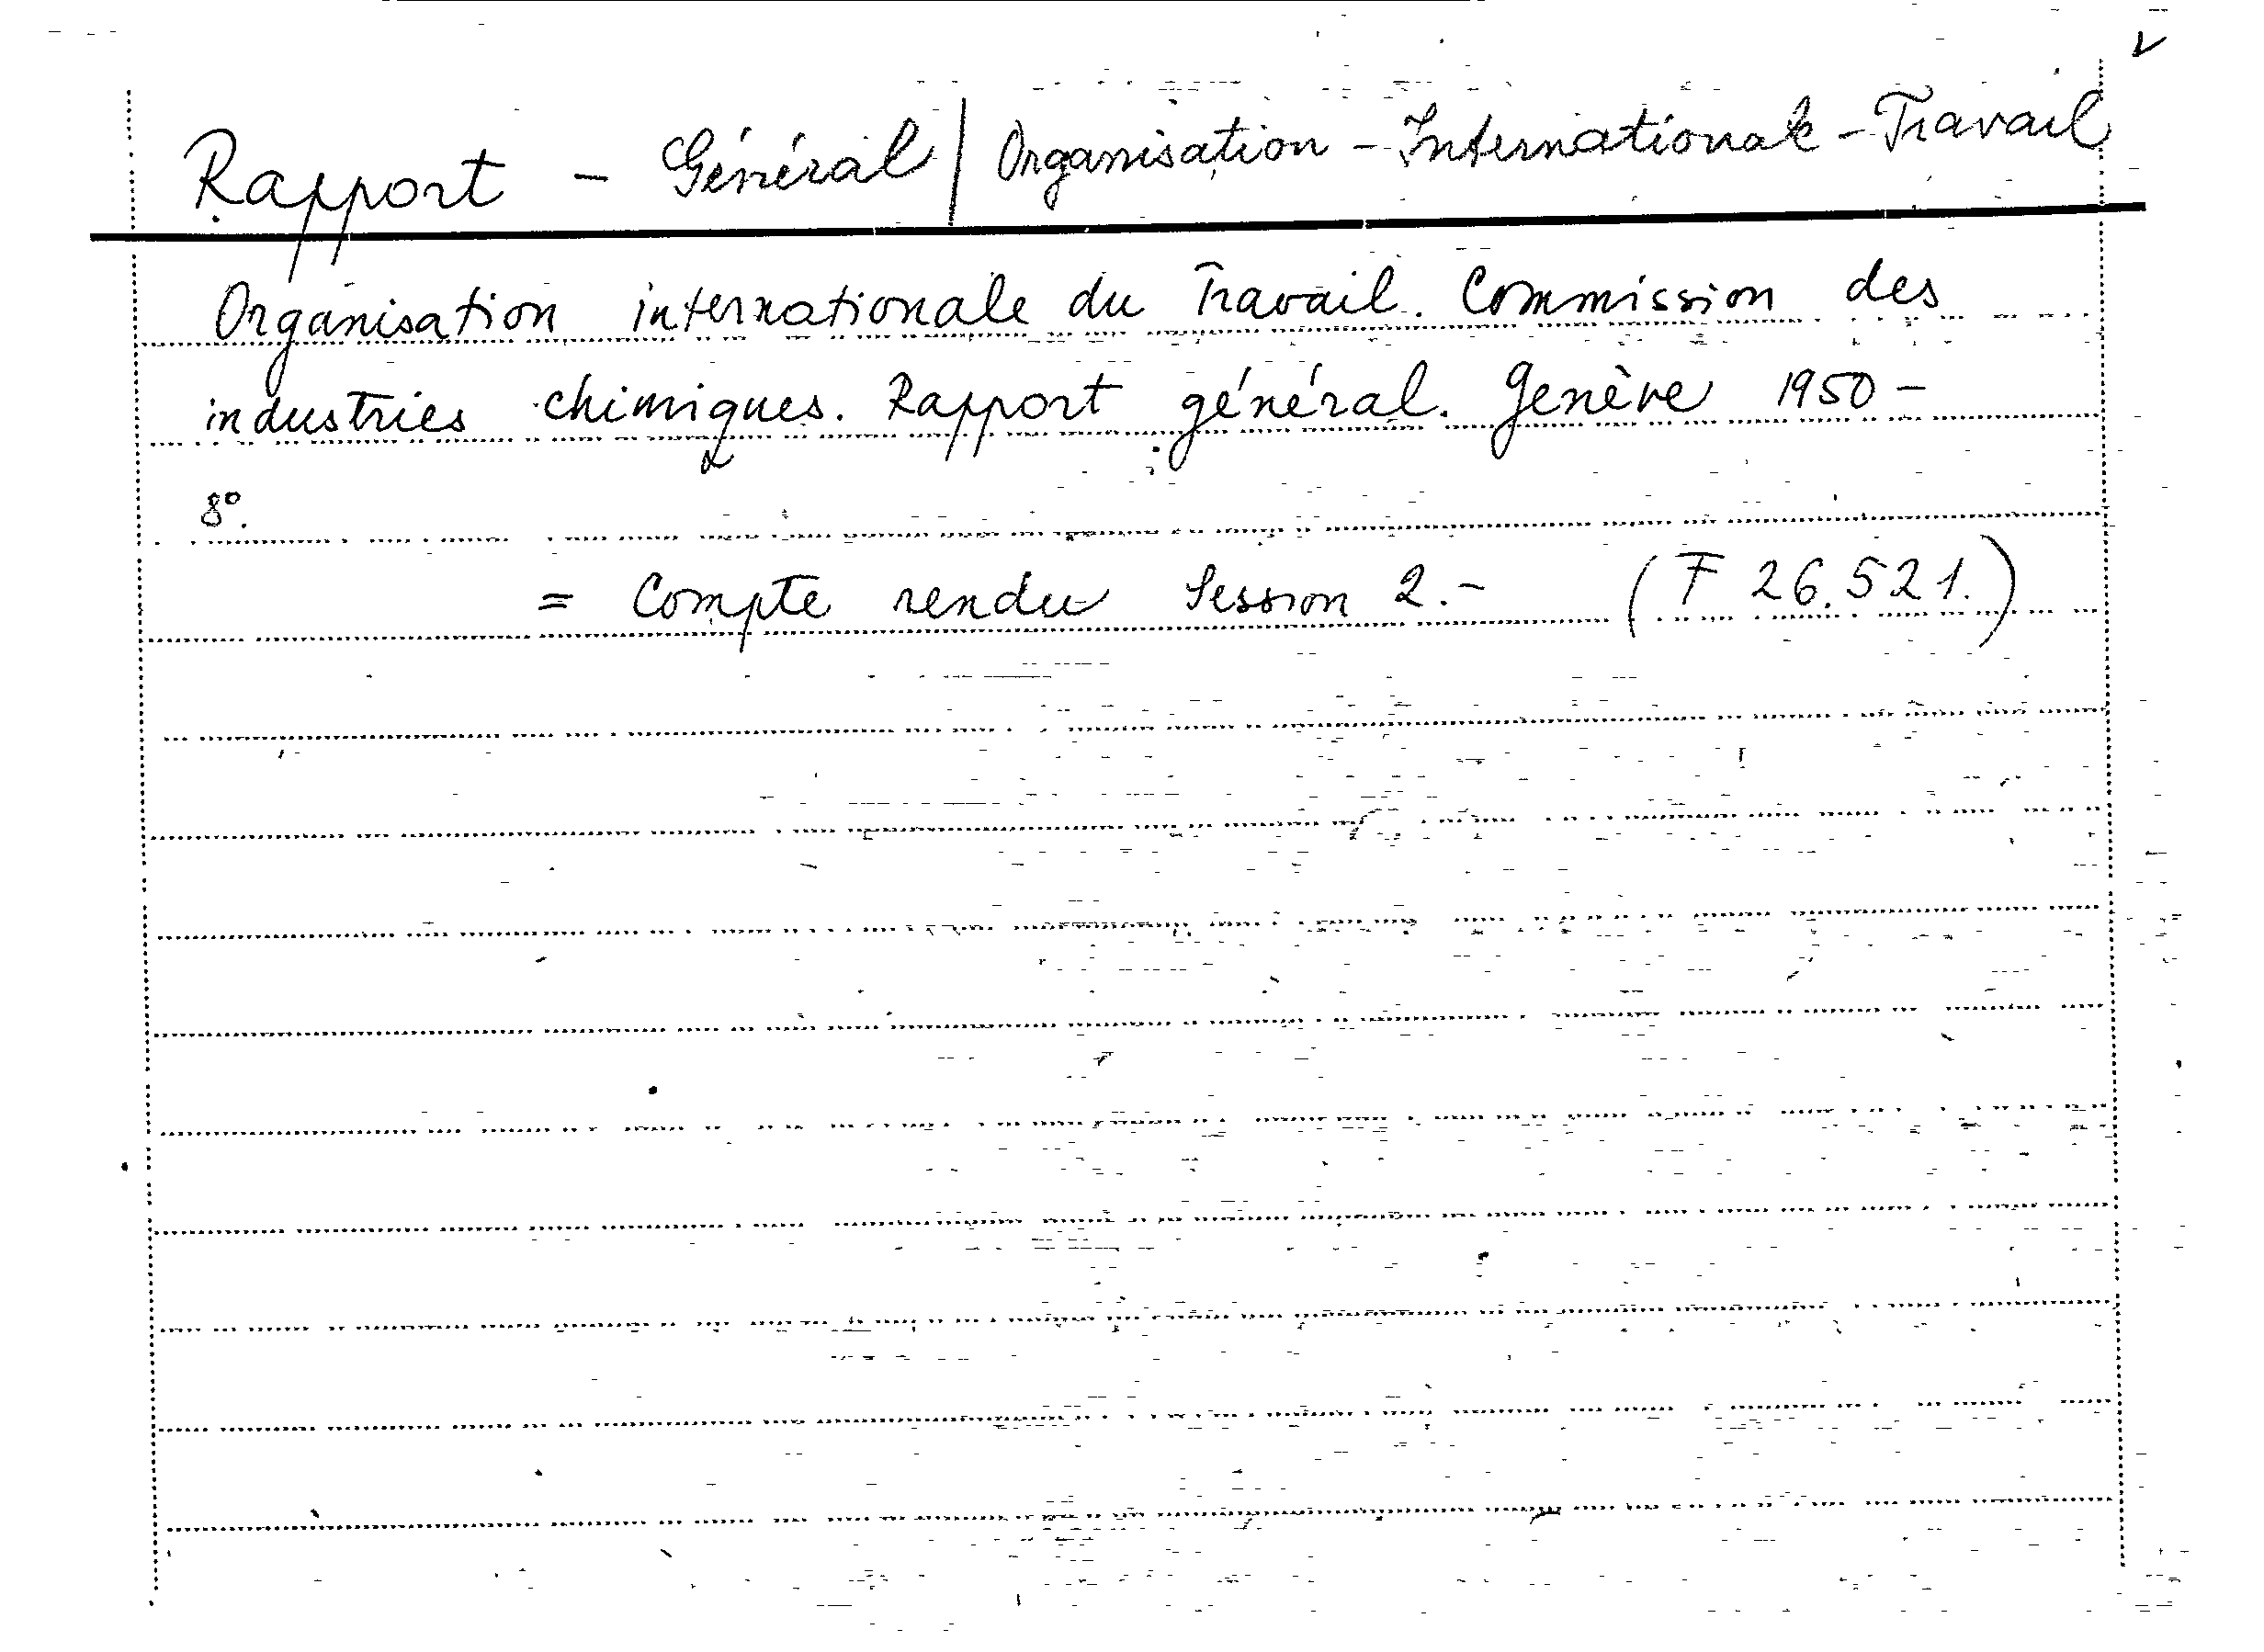 Rapport - Général | Organisation - Internationale - Travail
Organisation internationale du Travail. Commission des
industries chimiques. Rapport général. Genève 1950 -
8°.
= Compte rendu Session 2.- (F 26.521.)